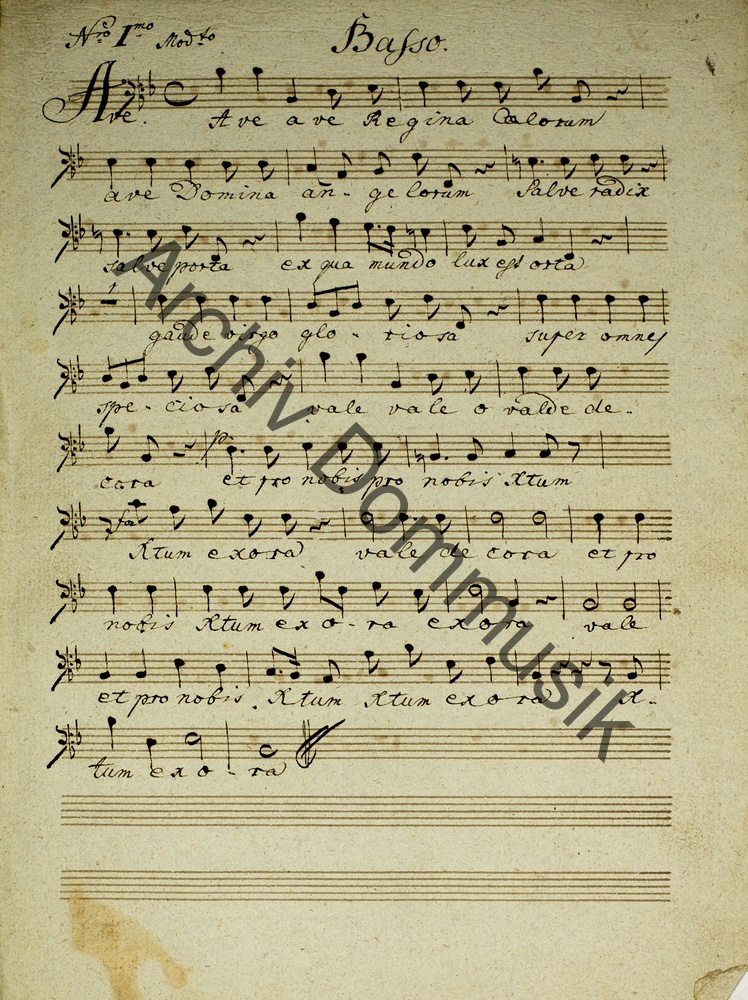 Nro 1mo Modto Basso.
Ave. Ave ave Regina Cælorum
ave Domina an- gelorum Salve radix
salve porta ex qua mundo lux est orta
1
gaude virgo glo- riosa super omnes
spe- ciosa vale vale o valde de-
cora et pro nobis pro nobis Xtum
Xtum exora vale de cora et pro
nobis Xtum exo- ra exora vale
et pro nobis. Xtum Xtum exora X-
tum exo- ra
Archiv Dommusik